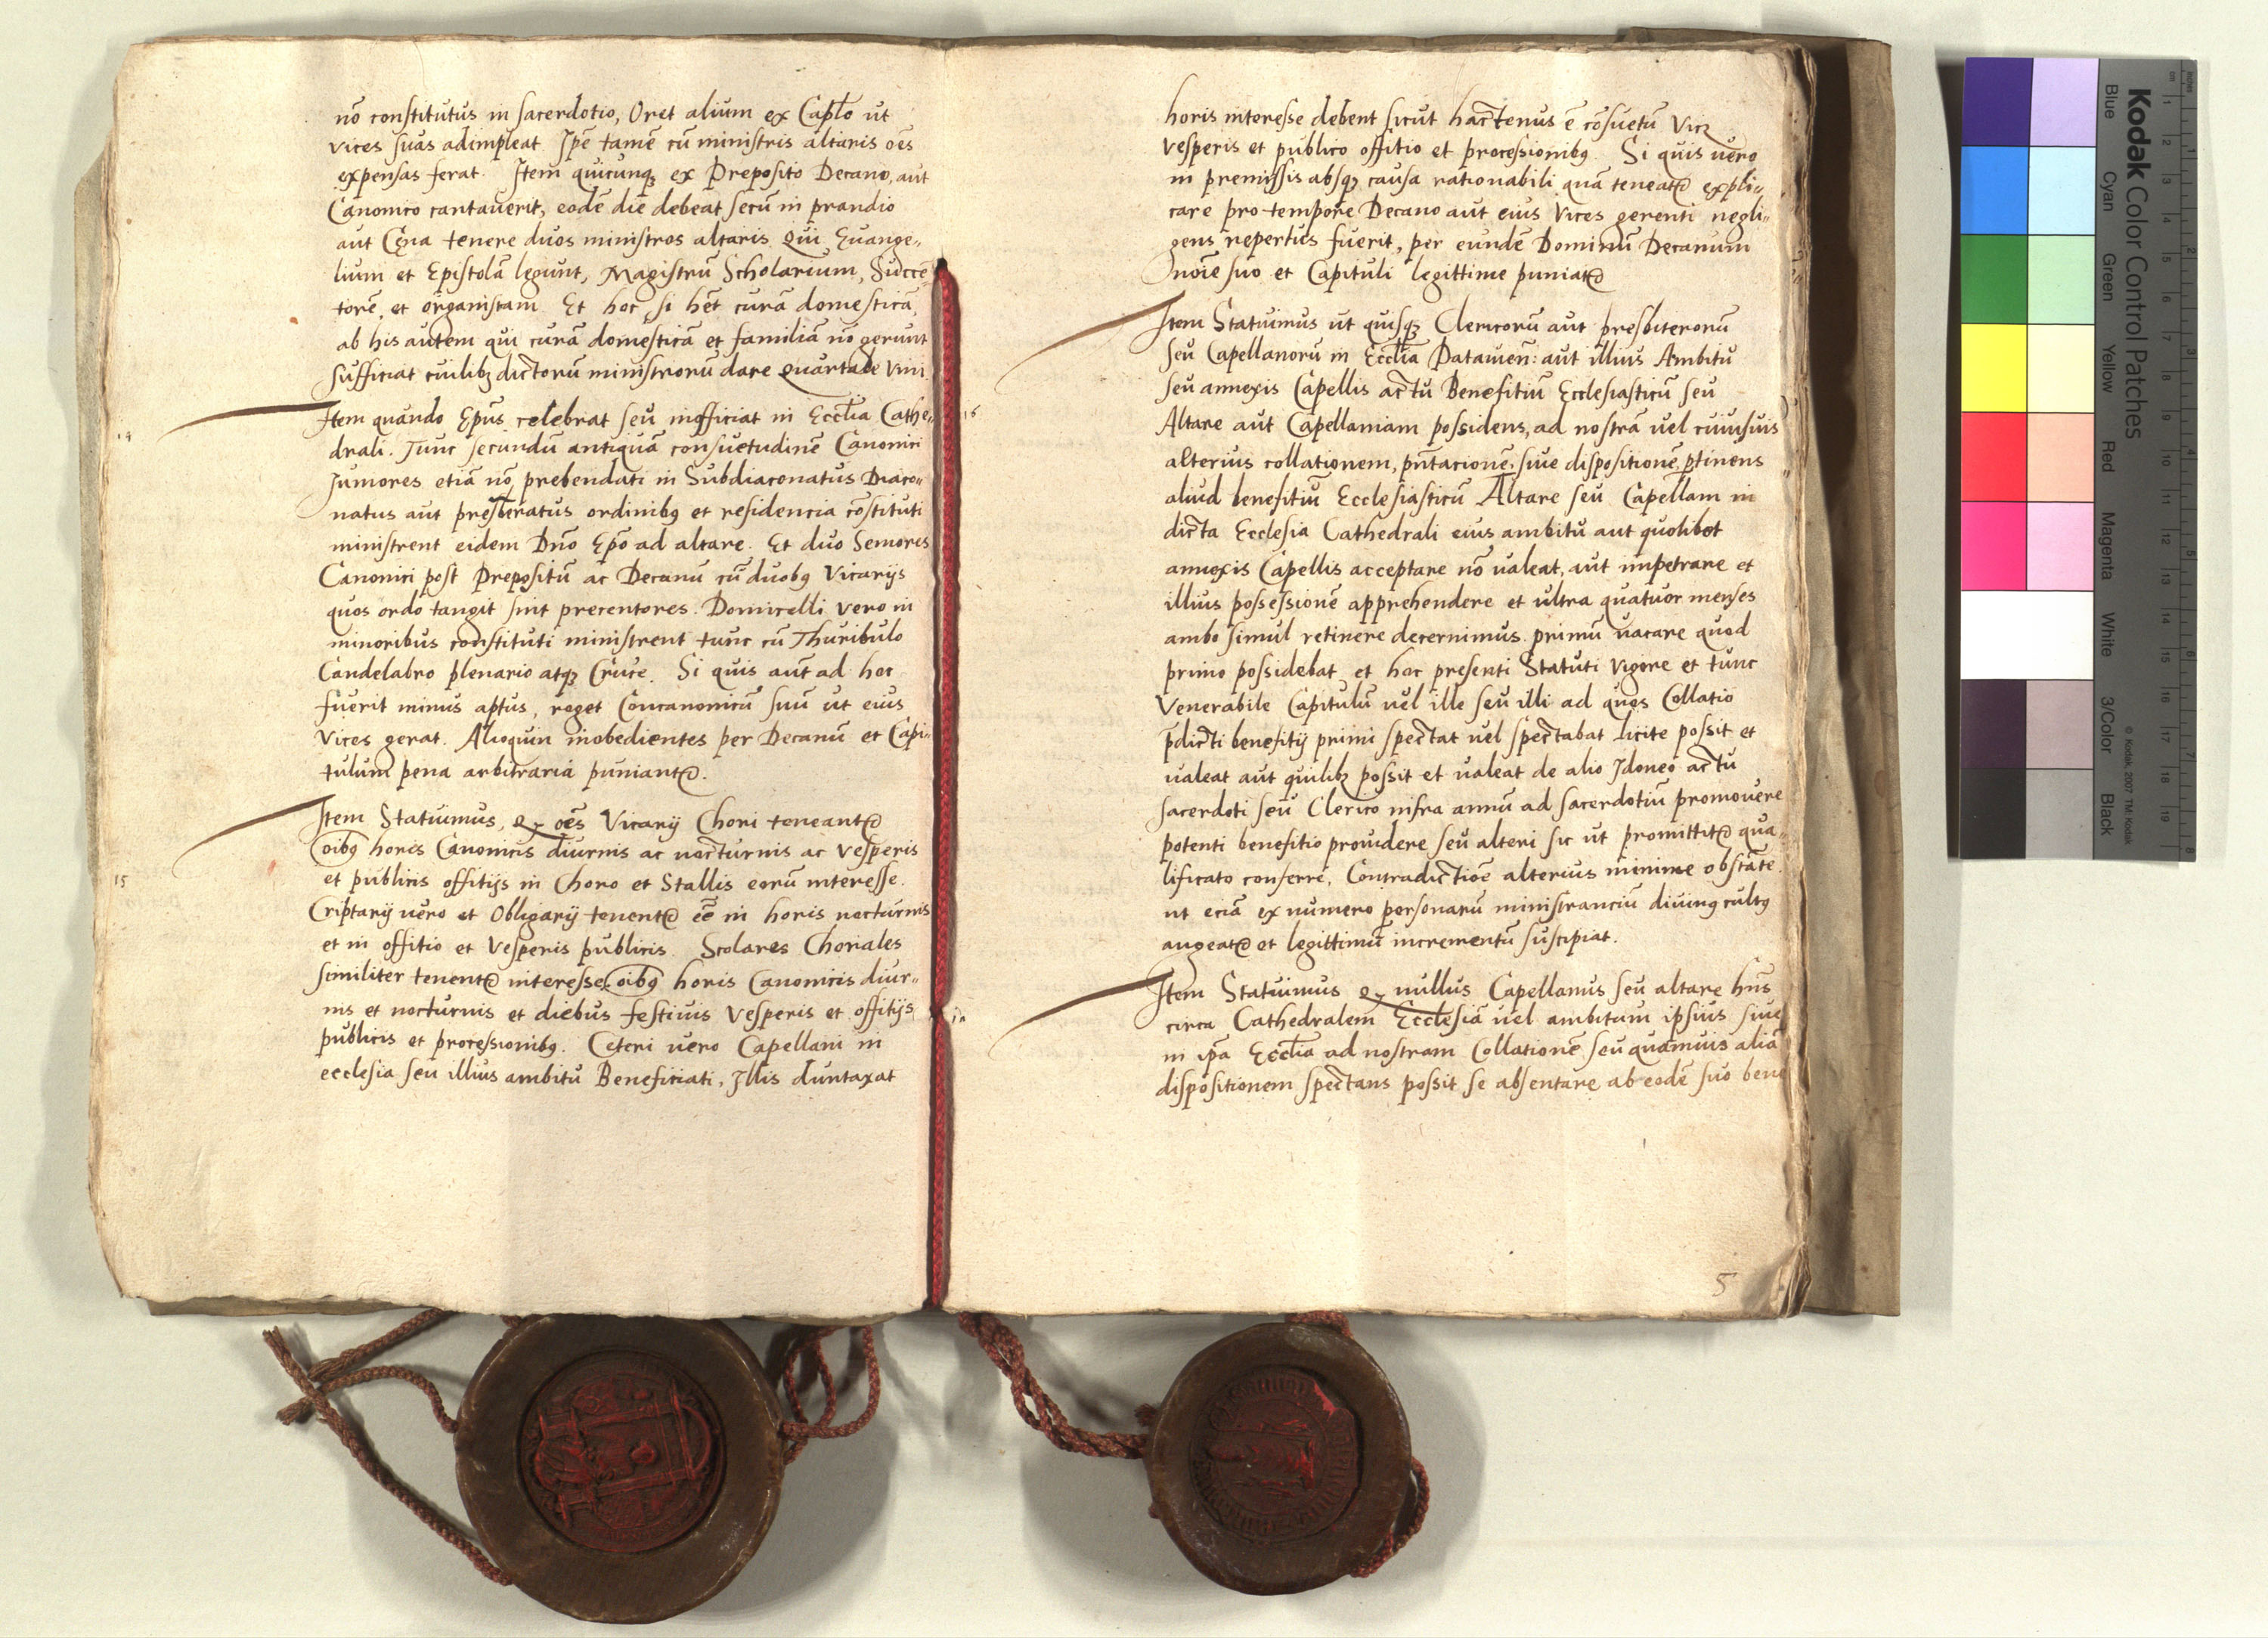 nō constitutus in sacerdotio, Oret alium ex Caplo ut
vices suas adimpleat. Ipē tamē cū ministris altaris oēs
expensas ferat. Item quicunqꝫ ex Preposito Decano, aut
Canonico cantauerit, eodē diē debeat secū in prandio
aut Cęna tenere duos ministros altaris qui Euange„
lium et Epistolā legunt, Magistrū Scholarium, Succē
torē, et organistam. Et hoc si hēt curā domesticā,
ab his autem qui curā domesticā et familiā nō gerunt
sufficiat cuilibꝫ dictorū ministrorū dare quartale vini.
14
Item quando Ep̄us celebrat seu inofficiat in Ecclīa Cathe„
drali. Tunc secundū antiquā consuetudinē Canonici
Juniores etiā nō prebendati in Subdiaconatus Diaco„
natus aut presbēratus ordinibꝯ et residencia cōstituti
ministrent eidem Dn̄o Ep̄o ad altare. Et duo Seniores
Canonici post Prepositū ac Decanū cū duobꝯ Vicarijs
quos ordo tangit sint precentores. Domicelli vero in
minoribus constituti ministrent tunc cū Thuribulo
Candelabro plenario atqꝫ Cruce. Si quis aūt ad hoc
fuerit minus aptus, roget Concanonicū suū ut eius
Vices gerat. Alioquin inobedientes per Decanū et Capi„
tulum pena arbitraria puniantᷣ.
Item Statuimus, ꝙ oēs Vicarij Chori teneantᷣ
oībꝯ horis Canonicis diurnis ac nocturnis ac Vesperis
15
et publicis offitijs in Choro et Stallis eorū interesse.
Criptarij uero et Obligarij tenentᷣ eē in horis nocturnis
et in offitio et Vesperis publicis. Scolares Choriales
similiter tenentᷣ interesse oībꝯ horis Canonicis diur„
nis et nocturnis et diebus festiuis Vesperis et offitijs
publicis et processionibꝯ. Ceteri uero Capellani in
ecclesia seu illius ambitu Beneficiati, Illis duntaxat
horis interesse debent sicut hactenus ē cōsuetū Vicꝫ
Vesperis et publico offitio et processionibꝯ. Si quis uero
in premissis absqꝫ causa rationabili quā teneatᷣ expli„
care pro tempore Decano aut eius Vices gerenti negli„
gens repertus fuerit, per eundē Dominū Decanum
noīe suo et Capituli legittime puniatᷣ
Item Statuimus ut quisqꝫ Clericorū aut presbiterorū
seu Capellanorū in Ecclīa Patauieñ: aut illius Ambitu
seu annexis Capellis actu Benefitiū Ecclesiasticū seu
16
Altare aut Capellaniam possidens, ad nostrā uel cuiusuis
alterius collationem, pn̄tacionē, siue dispositionē ꝑtinens
aliud benefitiū Ecclesiasticū Altare seu Capellam in
dicta Ecclesia Cathedrali eius ambitu aut quolibet
annexis Capellis acceptare nō ualeat, aut impetrare et
illius possessionē apprehendere et ultra quatuor menses
ambo simul retinere decernimus primū uacare quod
primo possidebat et hoc presenti Statuti vigore et tunc
Venerabile Capitulū uel ille seu illi ad quos Collatio
p̄dicti benefitij primi spectat uel spectabat licite possit et
ualeat aut quilibꝫ possit et ualeat de alio Idoneo actu
sacerdoti seu Clerico infra annū ad sacerdotiū promouere
potenti benefitio prouidere seu alteri sic ut promittitᷣ qua„
lificato conferre, Contradictiōe alterius minime obstāte.
ut eciā ex numero personarū ministranciū diuinꝯ cultꝯ
augeatᷣ et legittimū incrementū suscipiat.
Item Statuimus ꝙ nullus Capellanus seu altare hn̄s
circa Cathedralem Ecclesiā uel ambitum ipsius siue
in ip̄a Ecclīa ad nostram Collationē seu quamuis aliā
dispositionem spectans possit se absentare ab eodē suo bene
5
Kodak Color Control Patches
Blue Cyan Green Yellow Red Magenta White 3/Color Black
© Kodak, 2007 TM: Kodak
cm 1 2 3 4 5 6 7 8 9 10 11 12 13 14 15 16 17 18 19
inches 1 2 3 4 5 6 7 8